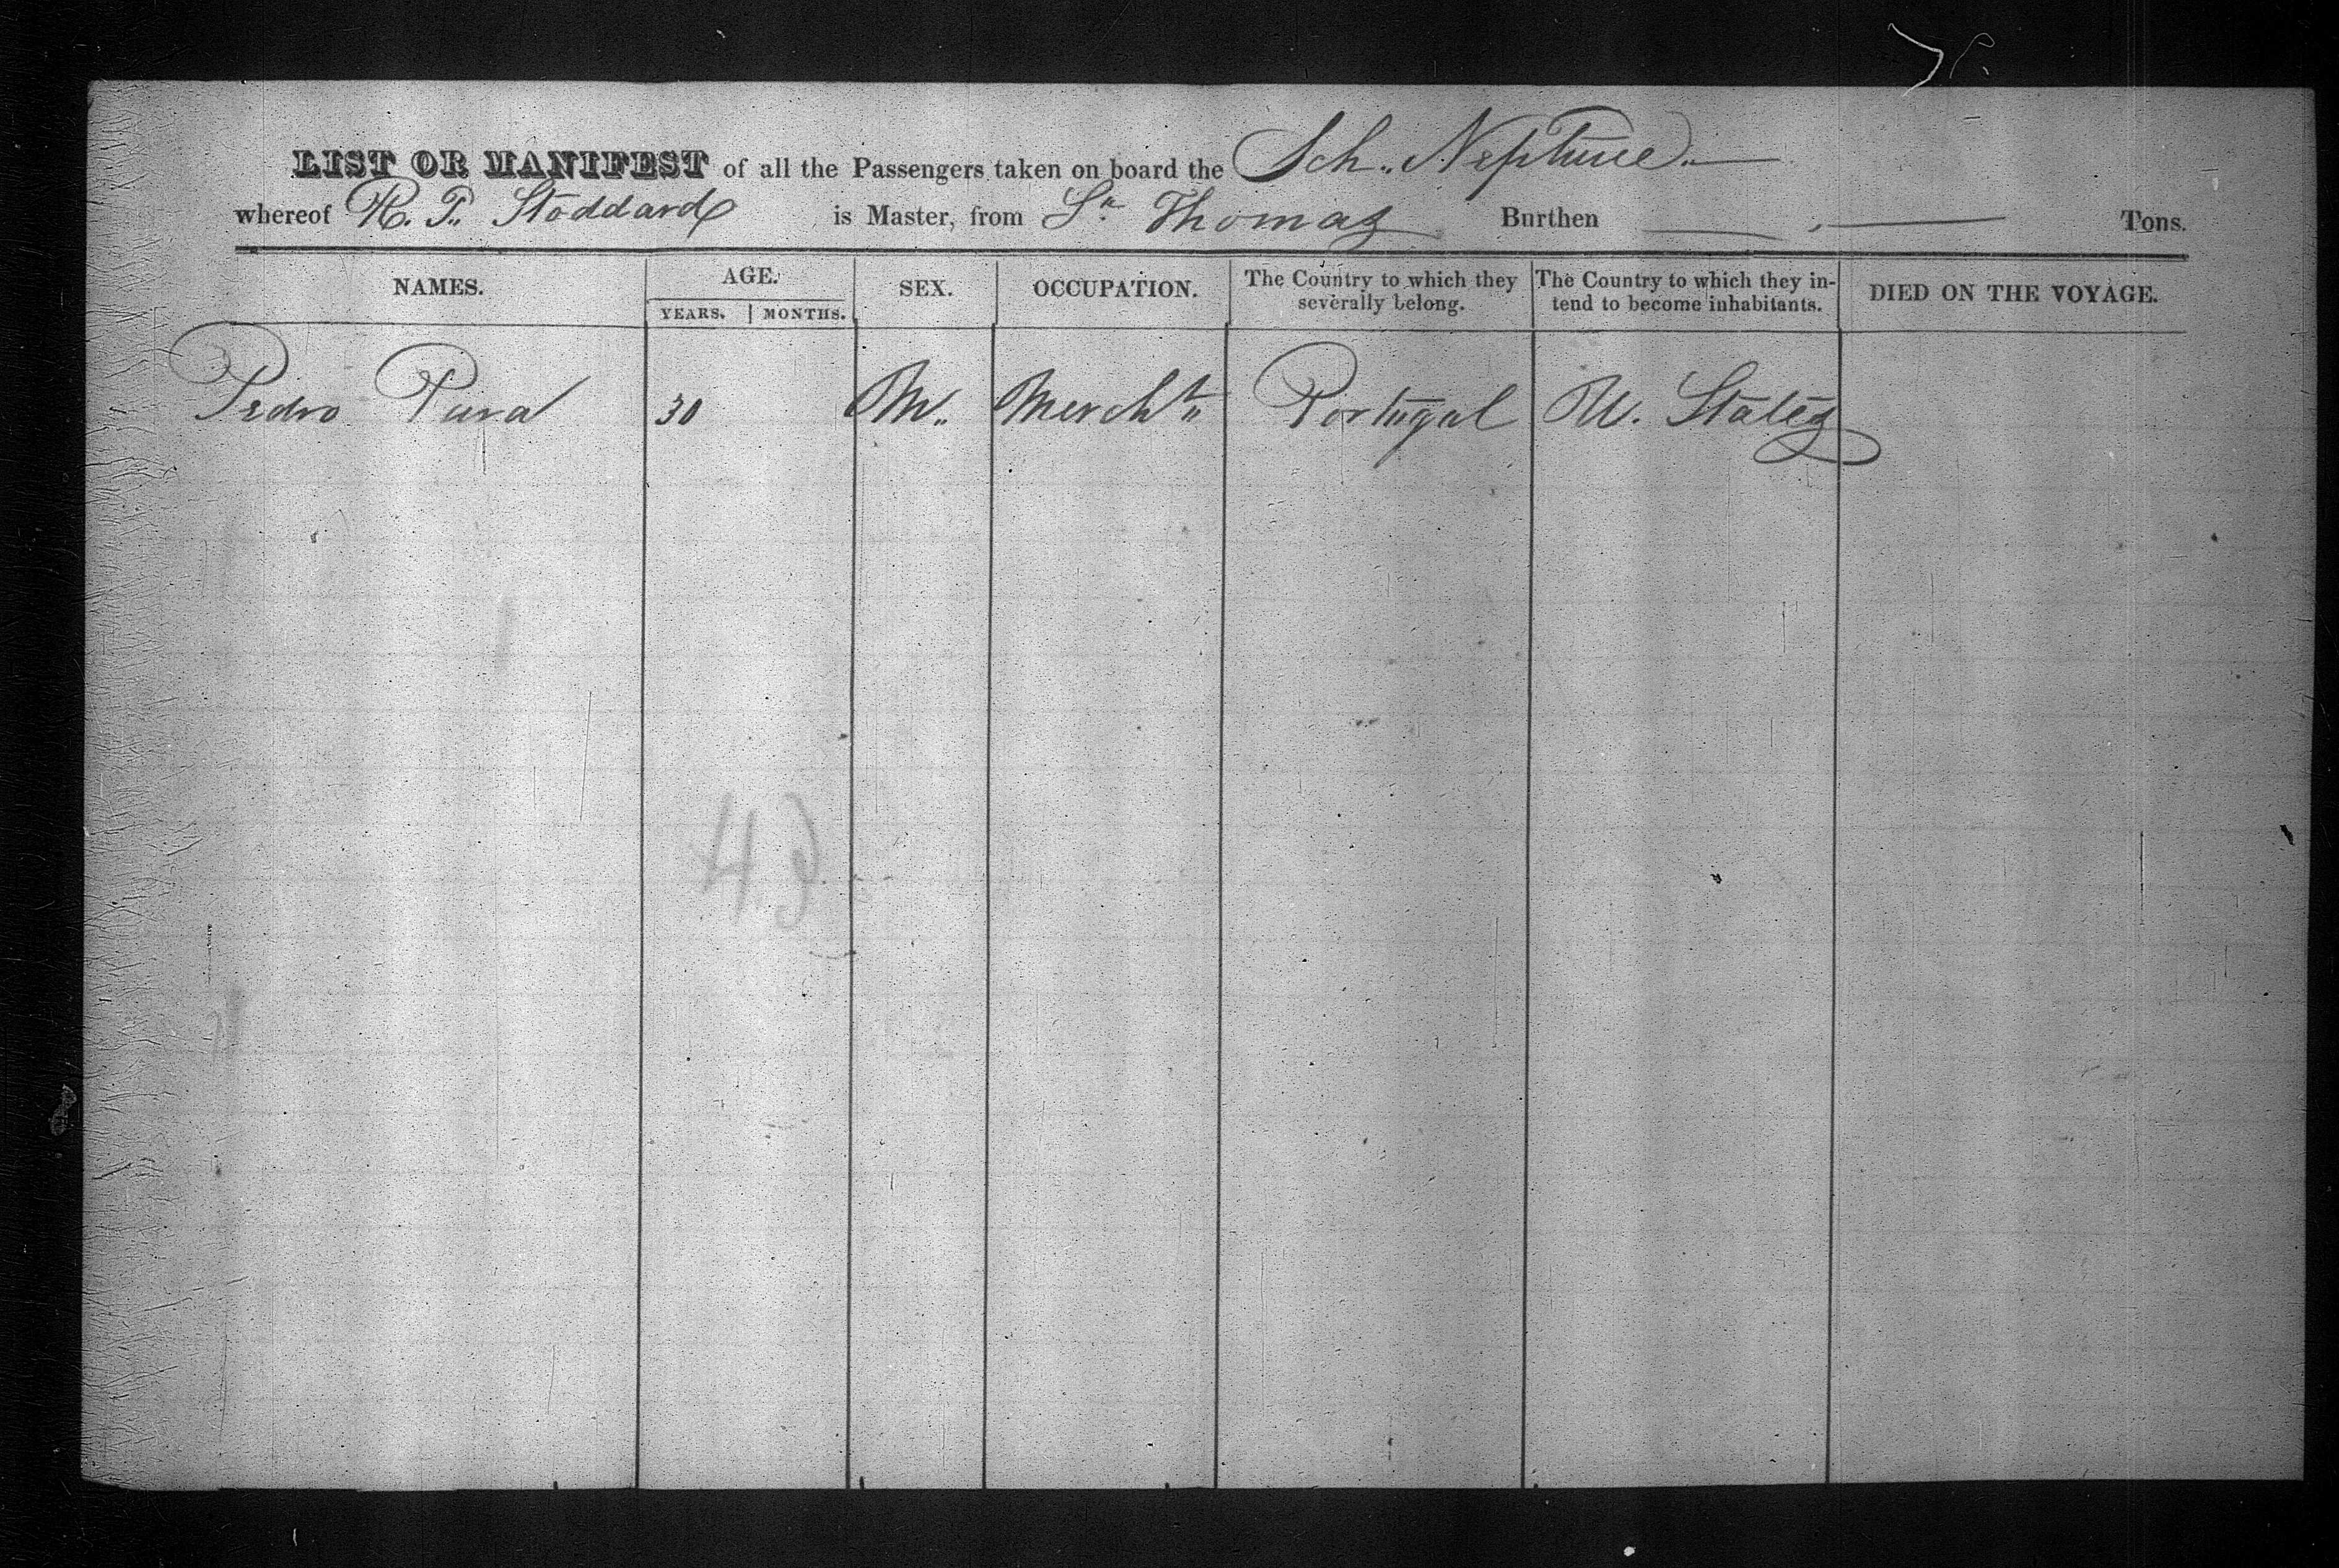 LIST OR MANIFEST of all the Passengers taken on board the Sch. Neptune
whereof R. P. Stoddard is Master, from St Thomas Burthen Tons.
NAMES. AGE. SEX. OCCUPATION. The Country to which they severally belong. The Country to which they intend to become inhabitants. DIED ON THE VOYAGE.
YEARS. MONTHS.
Pedro 30 M. Mercht Portugal U. States